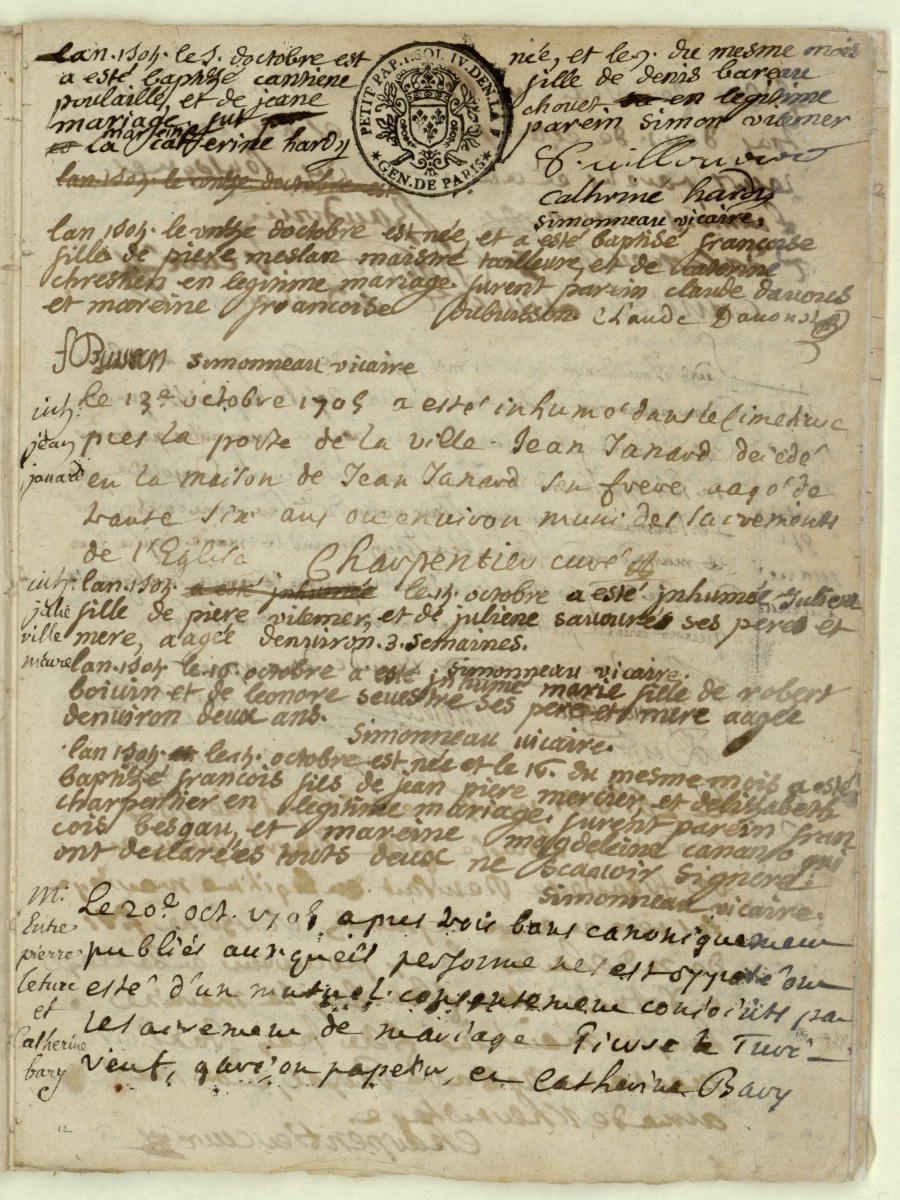 lan .1705. le 5. doctobre est née, et le 7. du mesme mois
a esté baptisée cantiene fille de denis bareau
poulaille, et de jeane chouet en legitime
mariage. fut parein simon vilemer
mareine
la catherine hardy
PETIT PAP. 1. SOL. IV. DEN. LA F
GEN. DE PARIS
lan 1705. le unze doctobre est
Cathrine hardy
simonneau vicaire.
lan 1705. le unze doctobre est née, et a esté baptisé francoise
fille de piere meslan maistre tailleure, et de caterine
chrestien en legitime mariage. furent parein claude davous
et mareine francoise dubuisson Claude Davous
simonneau vicaire
inh. jean janard
le 13e octobre 1705 a esté inhumé dans le cimetiere
pres la porte de la ville Jean Janard decedé
en la maison de Jean Janard son frere aagé de
trante six ans ou environ muni des sacrements
de l'Eglise Charpentier curé
inh. julie ville mture
lan .1705. a esté jnhumée le 15. octobre a esté jnhumée Juliene
fille de piere vilemer, et de juliene savourés ses peres et
mere, aagée denviron .3. semaines.
simonneau vicaire.
lan .1705. le 16. octobre a esté jnhumé marie fille de robert
boivin et de leonore sevestre ses pere et mere aagée
denviron deux ans.
simonneau vicaire.
lan 1705. le 15. octobre est née et le 16. du mesme mois a esté
baptisée francois fils de jean piere mercier, et delisabeth
charpentier en legitime mariage. furent parein fran
cois besgau, et mareine magdeleine canano qui
ont declarées touts deux ne scavoir signer.
simonneau vicaire.
M. Entre pierre leturc et Catherine bary
Le 20e oct. 1705 apres trois bans canoniquement
publiés auxquels personne ne s'est opposé ont
esté d'un mutuel consentement conjoints par
le sacrement de mariage Pierre le Turc
veuf, garçon papetier, et Catherine Bary
12